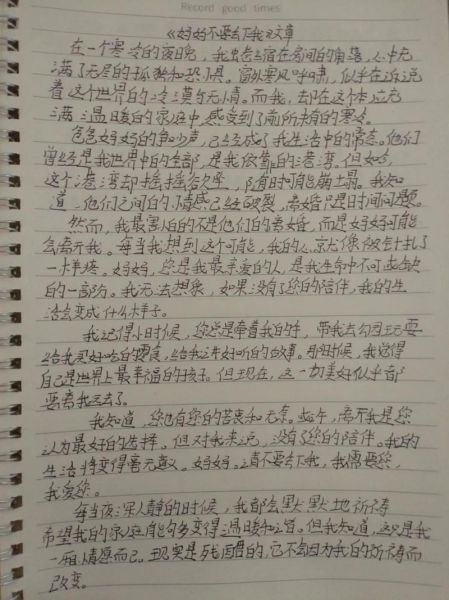 Record good times
《妈妈不要丢下我》文章
在一个寒冷的夜晚，我蜷缩在房间的角落，心中充
满了无尽的孤独和恐惧。窗外寒风呼啸，似乎在诉说
着这个世界的冷漠与无情。而我，却在这个本应充
满温暖的家庭中，感受到了前所未有的寒冷。
爸爸妈妈的争吵声，已经成了我生活中的常态。他们
曾经是我世界中的全部，是我依靠的港湾，但如今，
这个港湾却摇摇欲坠，随时可能崩塌。我知
道，他们之间的情感已经破裂，离婚只是时间问题。
然而，我最害怕的不是他们的离婚，而是妈妈可能
会离开我。每当我想到这个可能，我的心就像被针扎了
一样疼。妈妈，您是我最亲爱的人，是我生命中不可或缺
的一部分。我无法想象，如果没有了您的陪伴，我的生
活会变成什么样子。
我记得小时候，您总是牵着我的手，带我去公园玩耍
给我买好吃的糖果，给我讲好听的故事。那时候，我觉得
自己是世界上最幸福的孩子。但现在，这一切美好似乎都
要离我远去了。
我知道，您也有您的苦衷和无奈。或许，离开我是您
认为最好的选择。但对我来说，没有了您的陪伴。我的
生活将变得毫无意义。妈妈。请不要丢下我，我需要您，
我爱您。
每当夜深人静的时候，我都会默默地祈祷
希望我的家庭能够变得温暖和谐。但我知道，这只是我
一厢情愿而已。现实是残酷的，它不会因为我的祈祷而
改变。